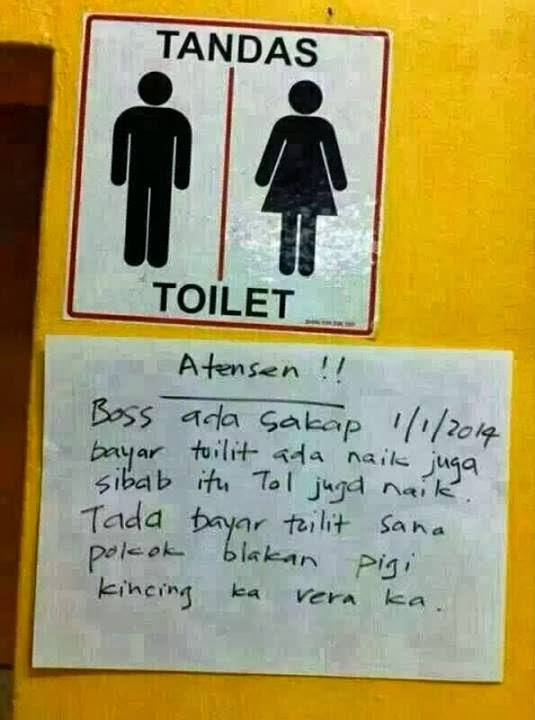 TANDAS
TOILET
Atensen !!
Boss ada sakap 1/1/2014
bayar toilit ada naik juga
sibab itu Tol juga naik.
Tada bayar toilit sana
pokok blakan pigi
kincing ka vera ka.